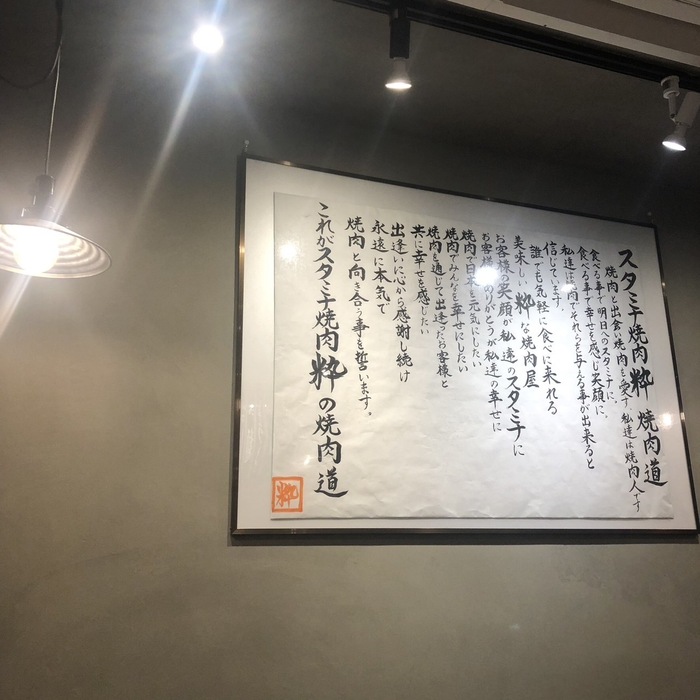 スタミナ焼肉粋 焼肉道
焼肉と出会い焼肉を愛す 私達は焼肉人です
食べる事で明日へのスタミナに、
食べる事で幸せを感じ笑顔に、
私達は焼肉でそれらを与える事が出来ると
信じています
誰でも気軽に食べに来れる
美味しい粋な焼肉屋
お客様の笑顔が私達のスタミナに
お客様のありがとうが私達の幸せに
焼肉で日本を元気にしたい
焼肉でみんなを幸せにしたい
焼肉を通じて出逢ったお客様と
共に幸せを感じたい
出逢いに心から感謝し続け
永遠に本気で
焼肉と向き合う事を誓います。
これがスタミナ焼肉粋の焼肉道
粋